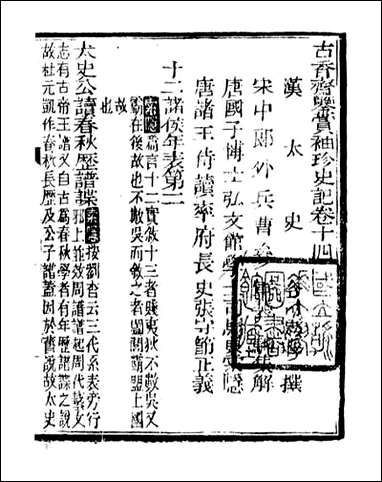 古香齋鑒賞袖珍史記卷十四
漢太史
撰
宋中郎外兵曹參
集解
唐國子博士弘文館學士
索隱
唐諸王侍讀率府長史張守節正義
十二諸侯年表第二
索隱篇言十二實敘十三者賤夷狄不數吳又
霸在後故也不數吳而敘之者闔閭霸盟上國
故也
太史公讀春秋歷譜諜索隱按劉杳云三代系表旁行
邪上並效周譜譜起周代藝文
志有古帝王譜又自古爲春秋學者有年歷譜諜之說
故杜元凱作春秋長歷及公子譜蓋因於舊說故太史